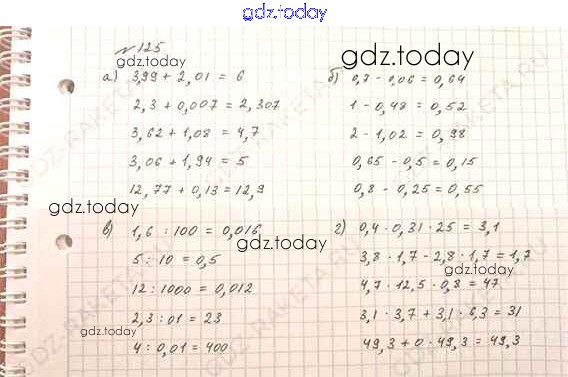 gdz.today
№ 125
gdz.today
gdz.today
а) 3,99 + 2,01 = 6
2,3 + 0,007 = 2,307
3,62 + 1,08 = 4,7
3,06 + 1,94 = 5
12,77 + 0,13 = 12,9
б) 0,7 - 0,06 = 0,64
1 - 0,48 = 0,52
2 - 1,02 = 0,98
0,65 - 0,5 = 0,15
0,8 - 0,25 = 0,55
gdz.today
в) 1,6 : 100 = 0,016
5 : 10 = 0,5
12 : 1000 = 0,012
2,3 : 01 = 23
4 : 0,01 = 400
gdz.today
gdz.today
г) 0,4 · 0,31 · 25 = 3,1
3,8 · 1,7 - 2,8 · 1,7 = 1,7
gdz.today
4,7 · 12,5 · 0,8 = 47
3,1 · 3,7 + 3,1 · 6,3 = 31
49,3 + 0 · 49,3 = 49,3
GDZ-RAKETA.RU